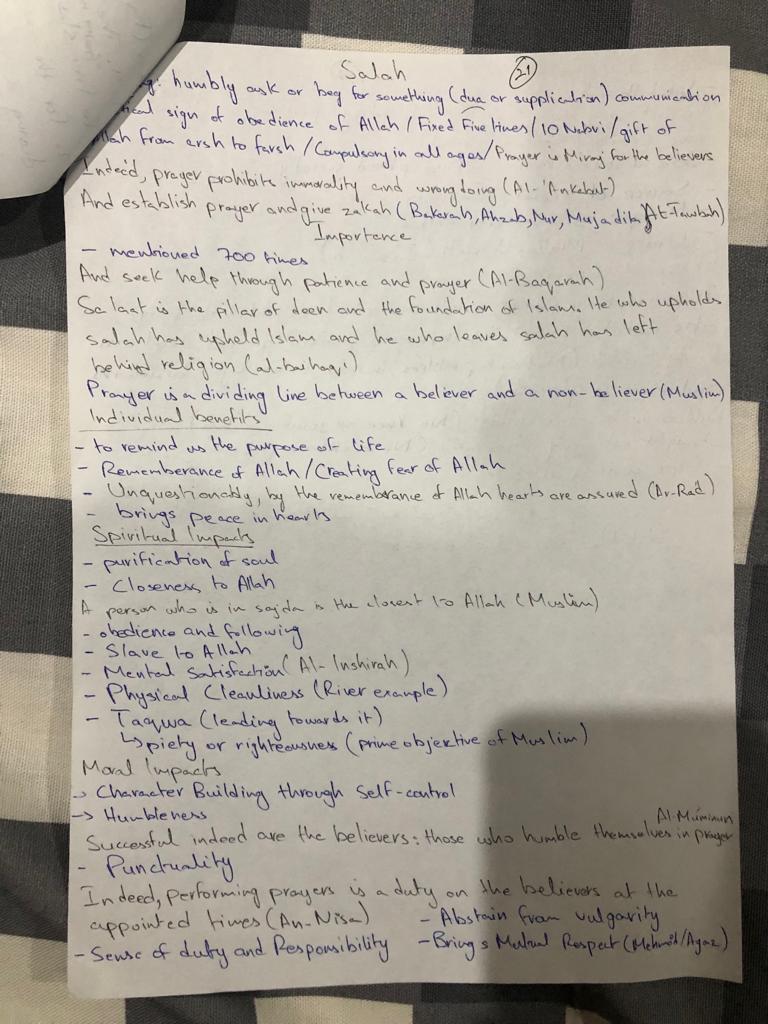 Salah
21
humbly ask or beg for something (dua or supplication) communication
sign of obedience of Allah / Fixed Five times / 10 Nabvi / gift of
from arsh to farsh / Compulsory in all ages / Prayer is Miraj for the believers
Indeed, prayer prohibits immorality and wrongdoing (Al-'Ankebut)
And establish prayer and give zakah (Bakarah, Ahzab, Nur, Mujadila, At-Tawbah)
Importance
- mentioned 700 times
And seek help through patience and prayer (Al-Baqarah)
Salaat is the pillar of deen and the foundation of Islam. He who upholds
salah has upheld Islam and he who leaves salah has left
behind religion (al-baihaqi)
Prayer is a dividing line between a believer and a non-believer (Muslim)
Individual benefits
- to remind us the purpose of life
- Rememberance of Allah / Creating fear of Allah
- Unquestionably, by the remembrance of Allah hearts are assured (Ar-Rad)
- brings peace in hearts
Spiritual Impacts
- purification of soul
- Closeness to Allah
A person who is in sajda is the closest to Allah (Muslim)
- obedience and following
- Slave to Allah
- Mental Satisfaction (Al-Inshirah)
- Physical Cleanliness (River example)
- Taqwa (leading towards it)
↳ piety or righteousness (prime objective of Muslim)
Moral Impacts
→ Character Building through Self-control
→ Humbleness
Al-Muminun
Successful indeed are the believers: those who humble themselves in prayer
- Punctuality
Indeed, performing prayers is a duty on the believers at the
appointed times (An-Nisa) - Abstain from vulgarity
- Sense of duty and Responsibility - Brings Mutual Respect (Mehmood/Ayaz)